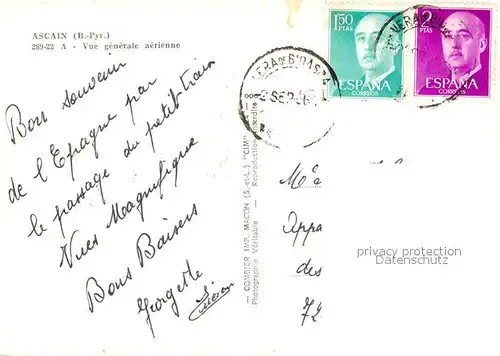 ASCAIN (B.-Pyr.)
289-22 A - Vue générale aérienne
Bon souvenir
de l'Espagne par
le passage du petit train
Vues Magnifique
Bons Baisers
Georgette
Lucien
— COMBIER IMP. MACON (S.-et-L.) "CIM"
Photographie Véritable — Reproduction interdite
VERA DE BIDASOA
SEP
1'50
PTAS
ESPAÑA
CORREOS
2
PTAS
ESPAÑA
CORREOS
Appa
des
72
privacy protection
Datenschutz